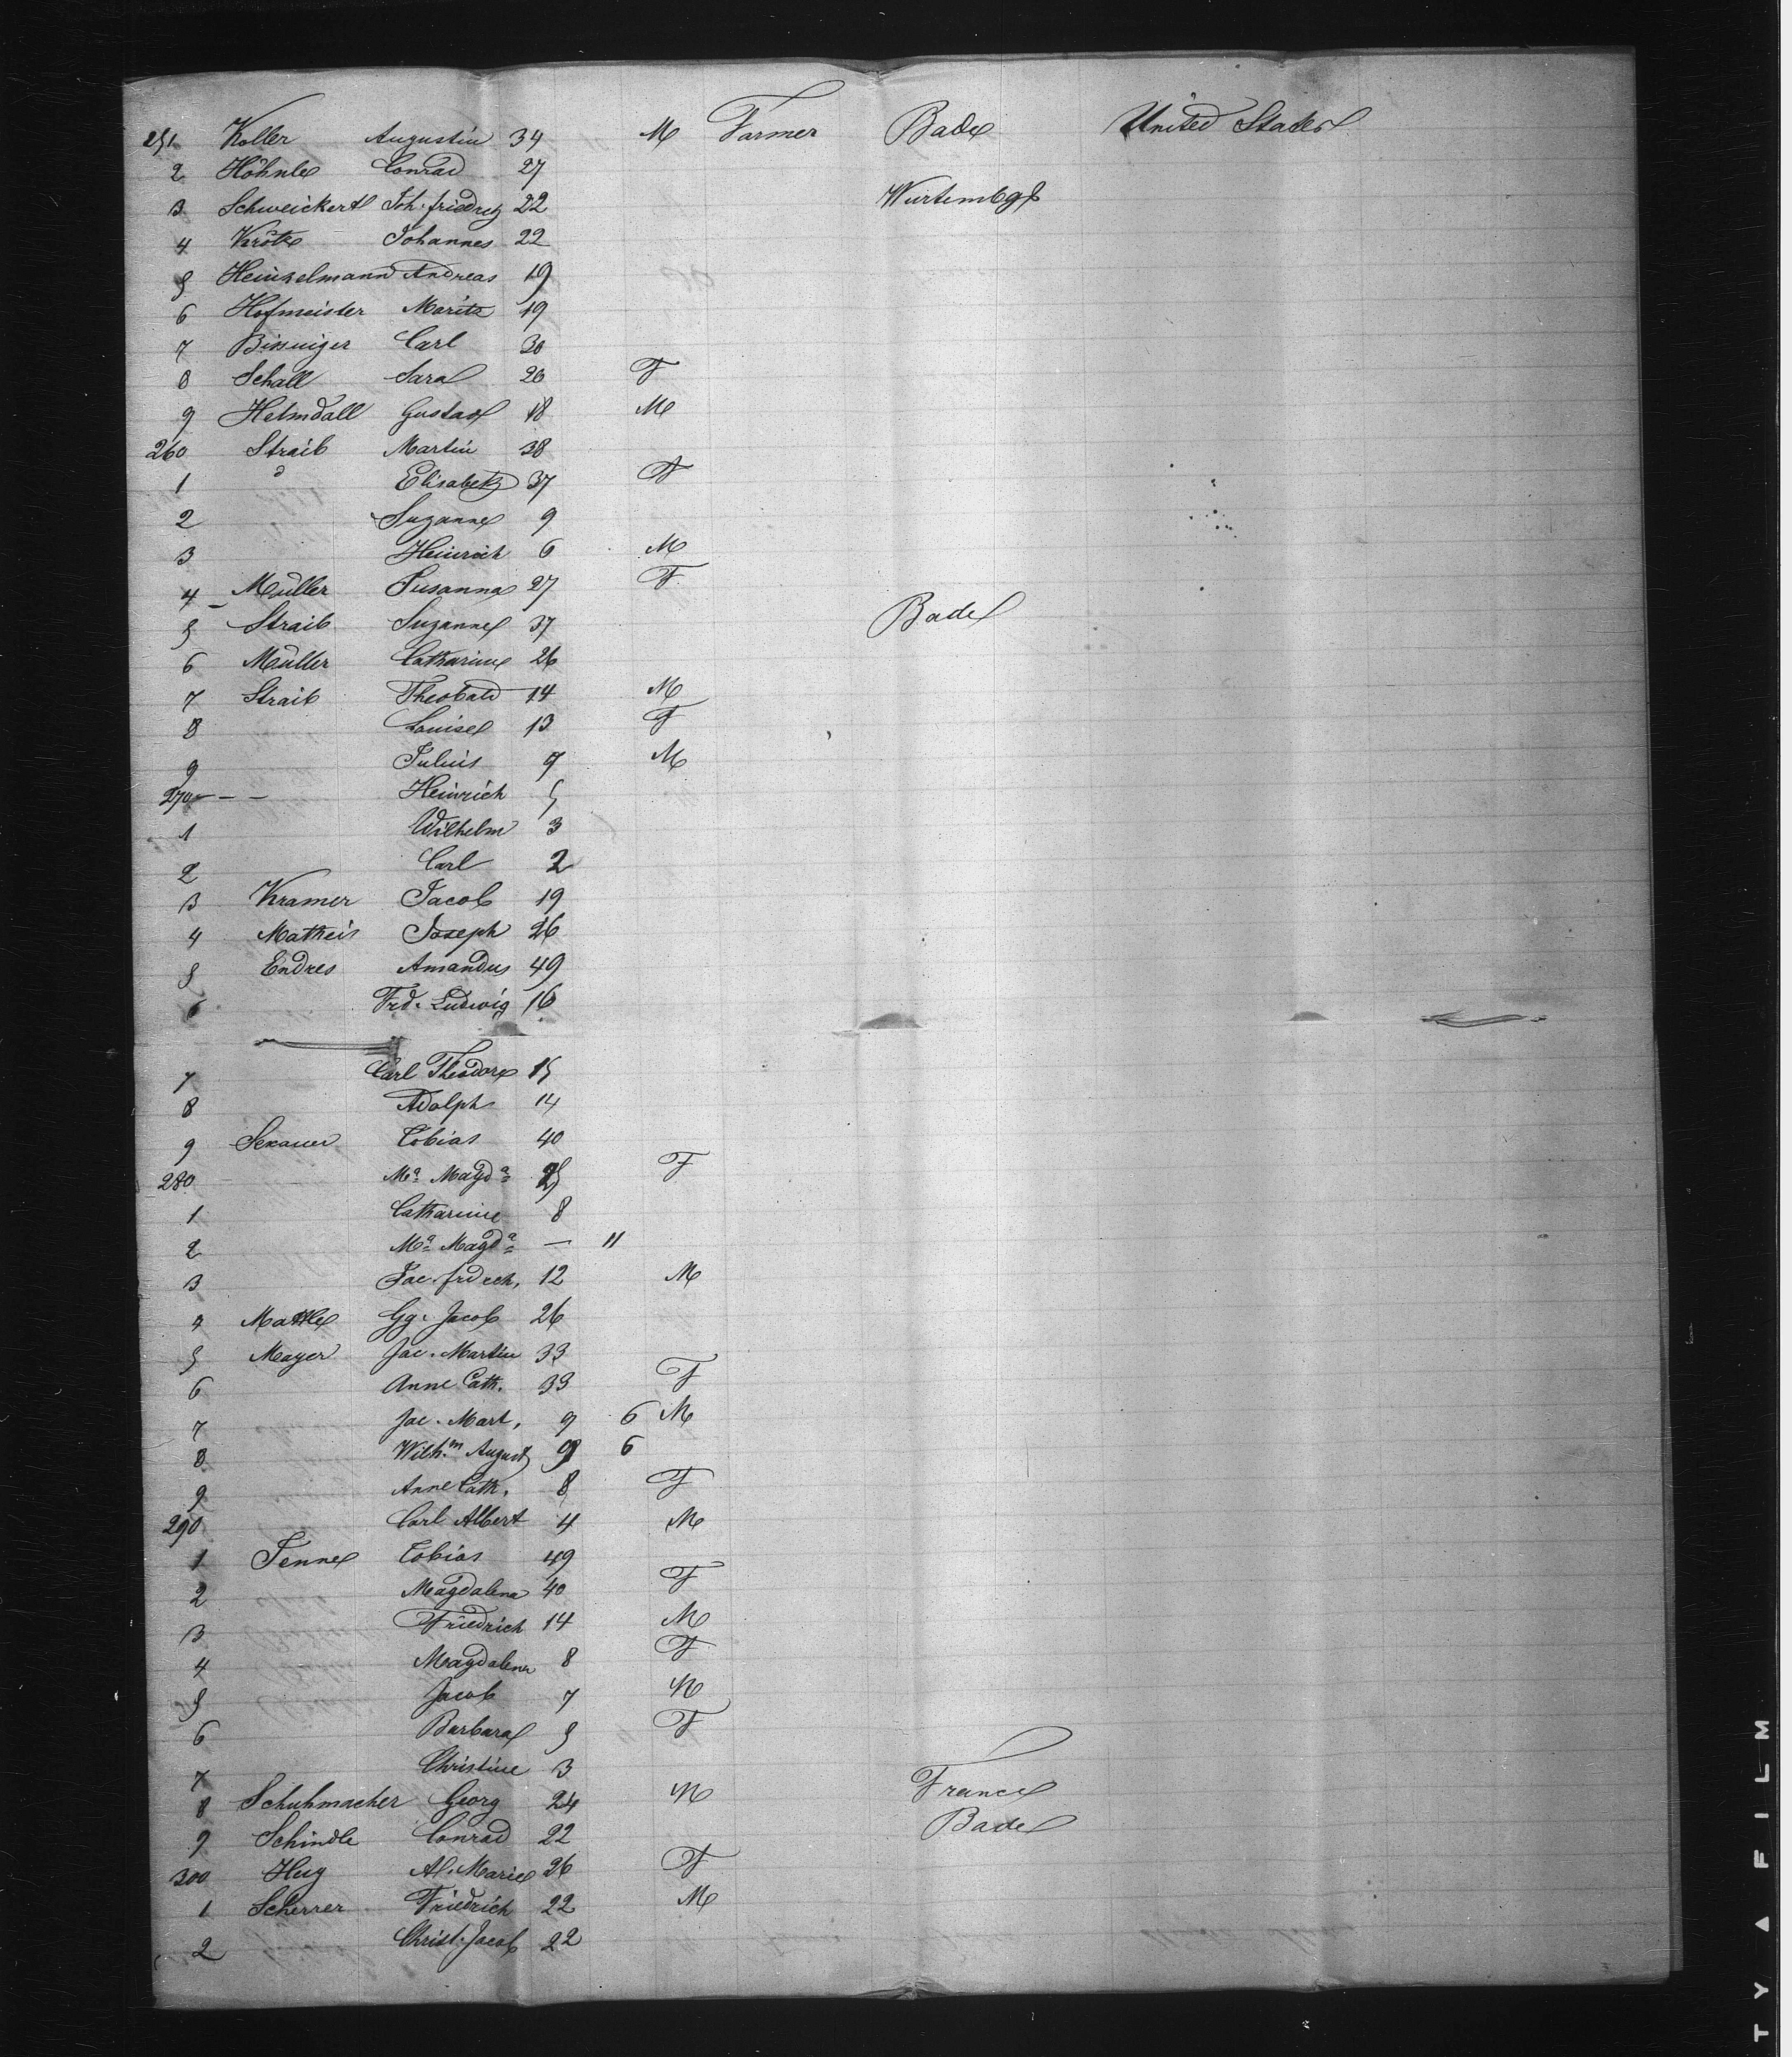 251 Koller Augustin 34 M Farmer Bade United States
2 Höhnle Conrad 27
3 Schweickert Joh. friedrch 22 Würtembg
4 Kröte Johannes 22
5 Heinzelmann Andreas 19
6 Hofmeister Moritz 19
7 Bissinger Carl 30
8 Schall Sara 20 F
9 Helmdall Gustav 18 M
260 Straib Martin 38
1 d Elisabeth 37 F
2 Suzanne 9
3 Heinrich 6 M
4 Müller Susanna 27 F
5 Straib Suzanne 37 Bade
6 Müller Catharine 26
7 Straib Theobald 14 M
8 Louise 13 F
9 Julius 9 M
270 - - Heinrich 5
1 Wilhelm 3
2 Carl 2
3 Kramer Jacob 19
4 Matheis Joseph 26
5 Endres Amandus 49
6 Frd. Ludwig 16
7 Carl Theodore 15
8 Adolph 14
9 Tobias 40
280 Ma Magda F
1 Catharine 8
2 Ma Magda — 11
3 Jac. frdrch, 12 M
4 Mattle Gg. Jacob 26
5 Mayer Jac. Martin 33
6 Anne Cath. 33 F
7 Jac. Mart, 9 6 M
8 Wilhm August 6
9 Anne Cath. 8 F
290 Carl Albert 4 M
1 Jenne Tobias 49
2 Magdalena 40 F
3 Friedrich 14 M
4 Magdalena 8 F
5 Jacob 7 M
6 Barbara 5 F
7 Christine 3
8 Schuhmacher Georg 24 M France
9 Schindle Conrad 22 Bade
300 Hug Al. Marie 26 F
1 Scherrer Friedrich 22 M
2 Christ. Jacob 22
TY ▲ FILM